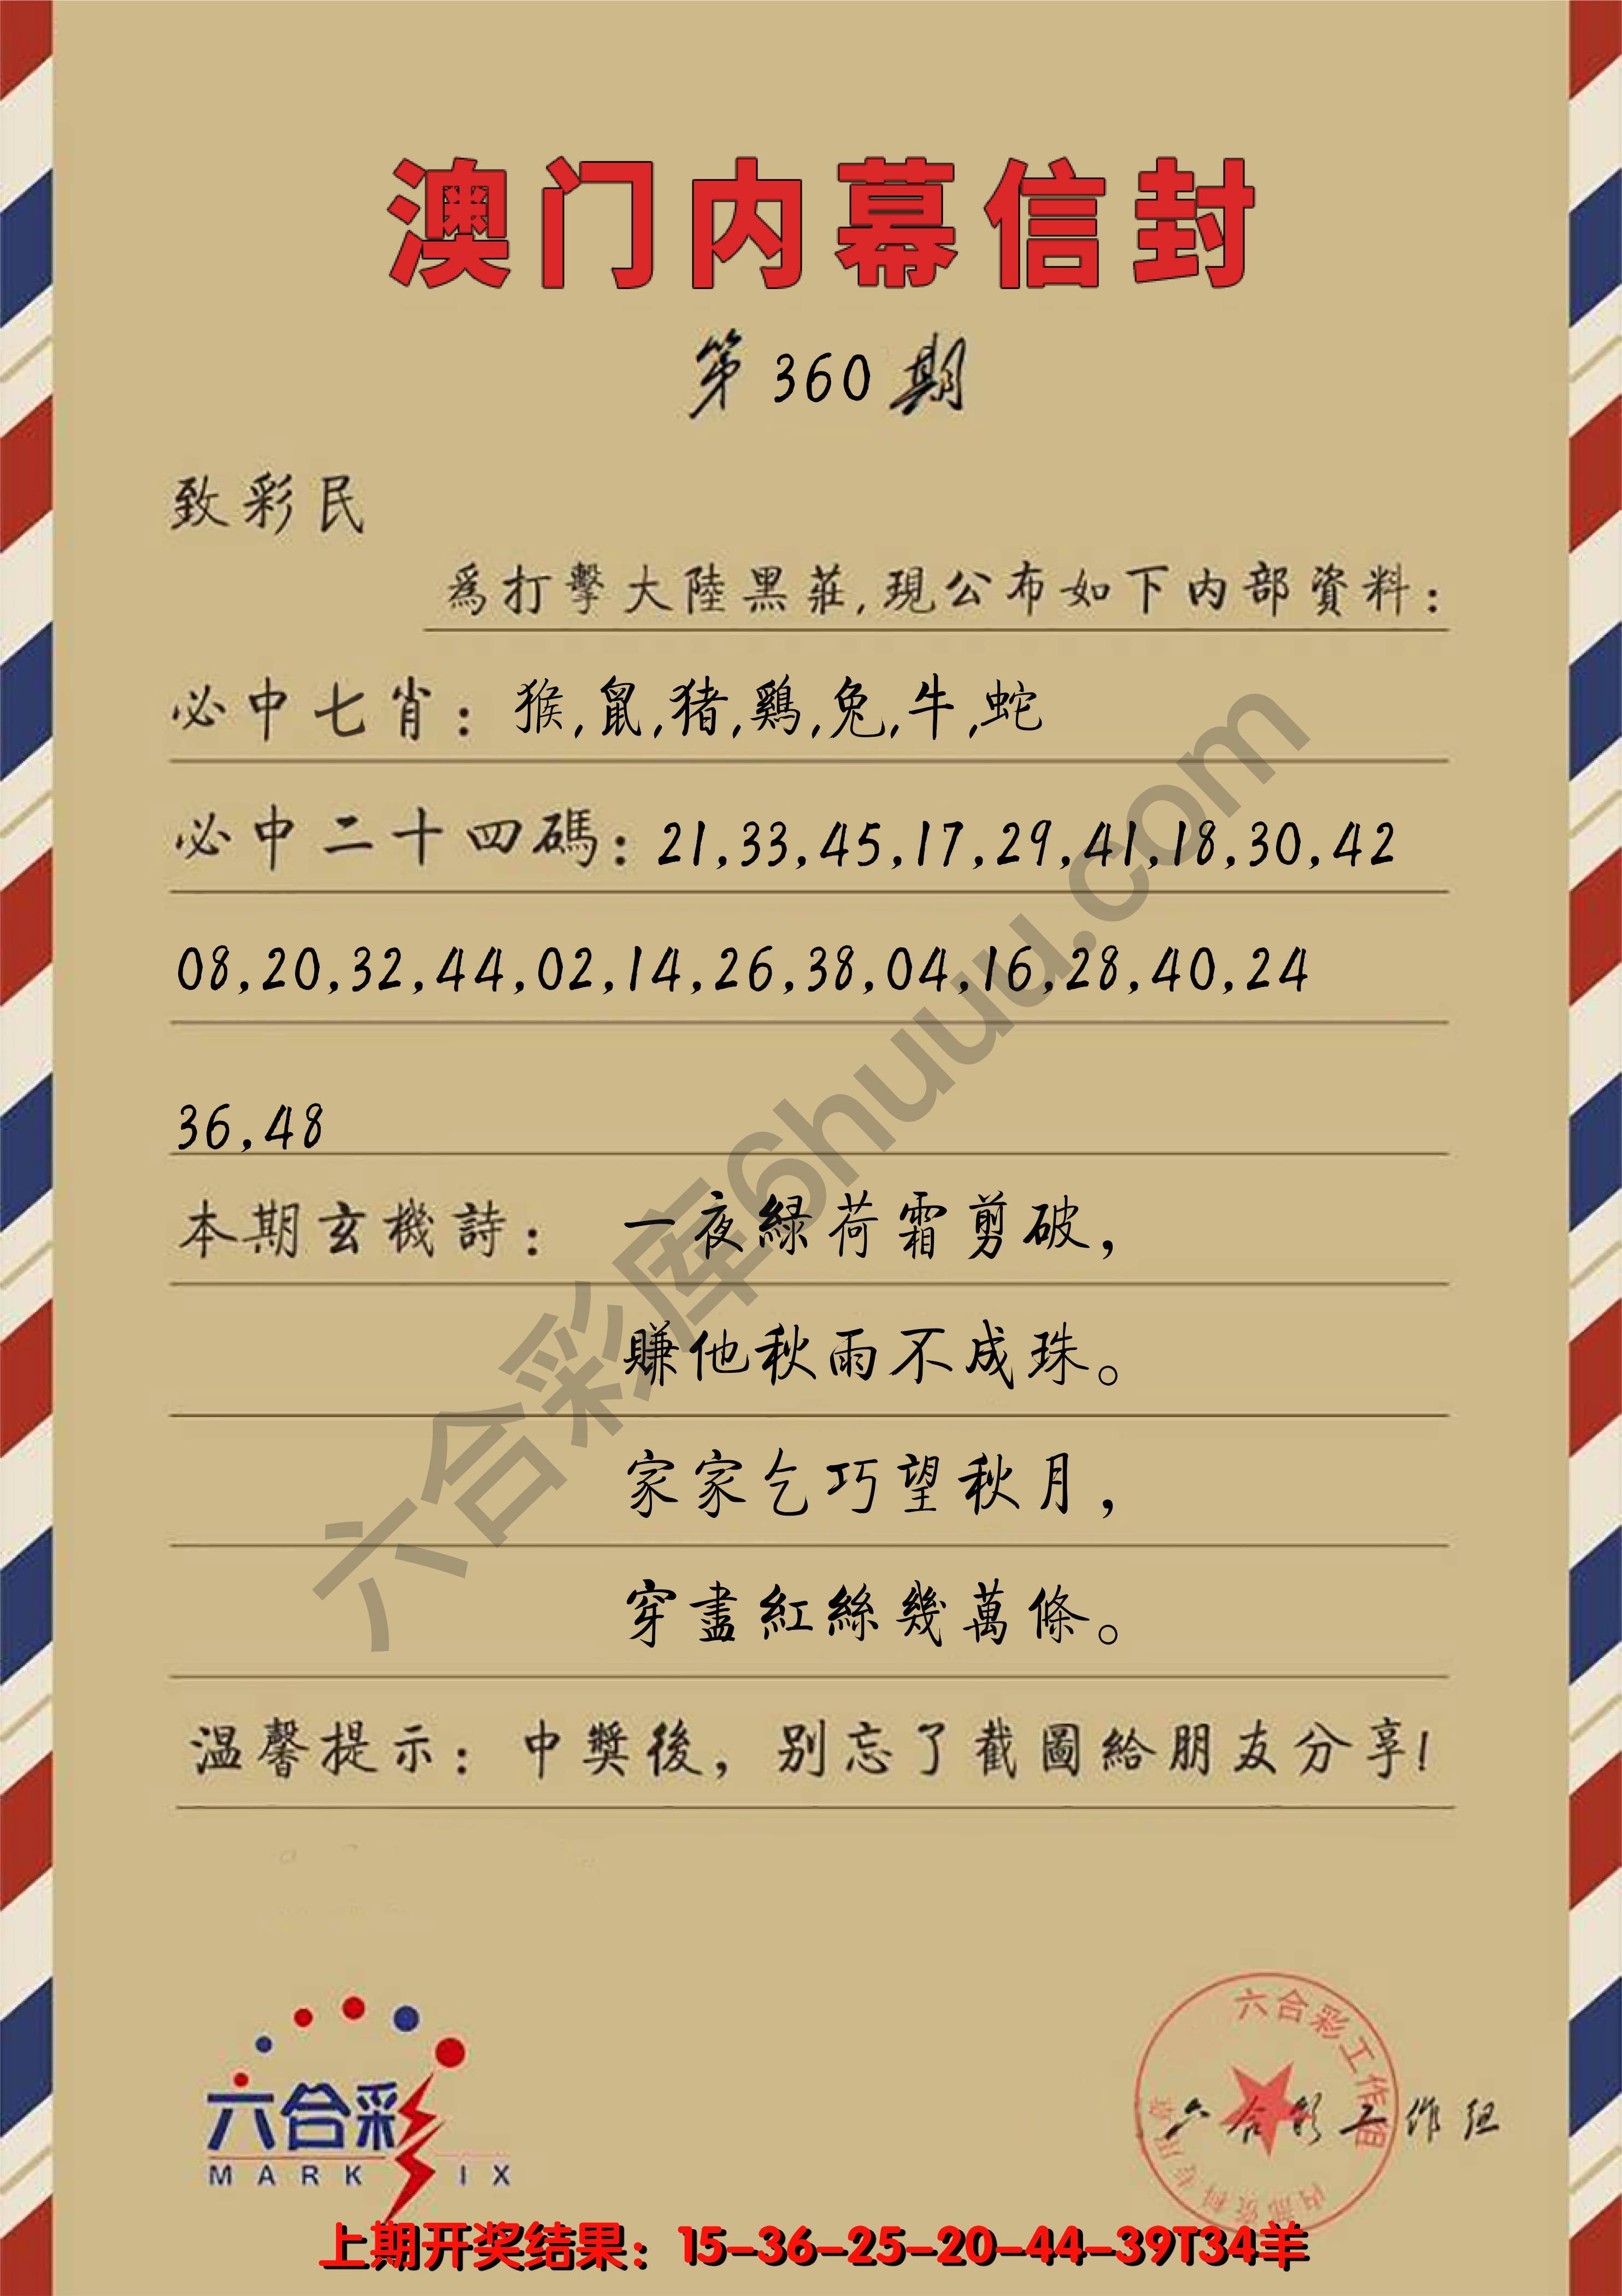 澳门内幕信封
第360期
致彩民
爲打擊大陸黑莊,現公布如下内部資料:
必中七肖: 猴,鼠,猪,鷄,兔,牛,蛇
必中二十四碼: 21,33,45,17,29,41,18,30,42
08,20,32,44,02,14,26,38,04,16,28,40,24
36,48
本期玄機詩: 一夜緑荷霜剪破,
賺他秋雨不成珠。
家家乞巧望秋月,
穿盡紅絲幾萬條。
温馨提示: 中獎後, 别忘了截圖給朋友分享!
六合彩库6huuu.com
六合彩
MARK IX
六合彩工作组
六合彩工作组
上期开奖结果: 15-36-25-20-44-39T34羊